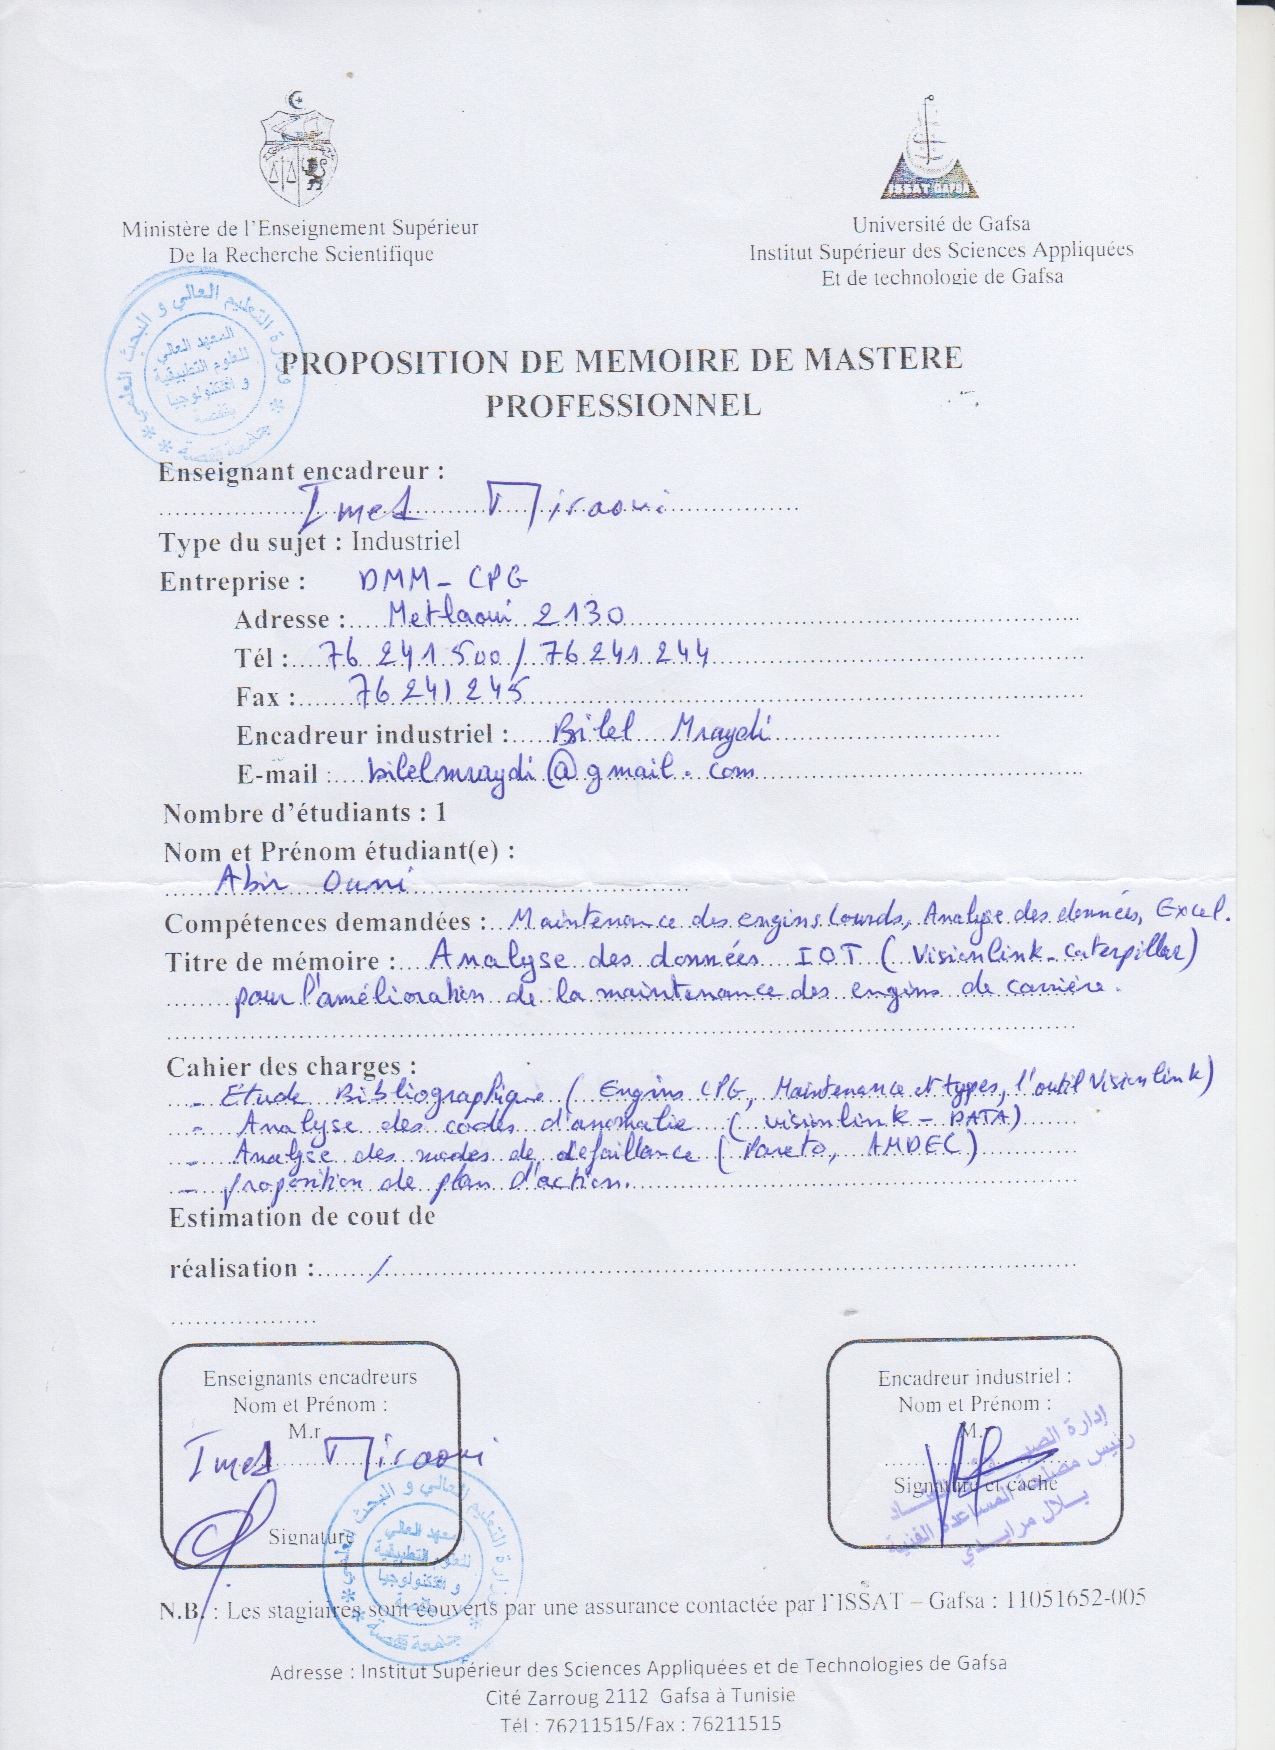 ISSAT GAFSA
Ministère de l'Enseignement Supérieur
De la Recherche Scientifique
Université de Gafsa
Institut Supérieur des Sciences Appliquées
Et de technologie de Gafsa
وزارة التعليم العالي و البحث العلمي
المعهد العالي
للعلوم التطبيقية
و التكنولوجيا
بقفصة
جامعة قفصة
PROPOSITION DE MEMOIRE DE MASTERE
PROFESSIONNEL
Enseignant encadreur :
Imed Miraoui
Type du sujet : Industriel
Entreprise : DMM - CPG
Adresse : Metlaoui 2130
Tél : 76 241 500 / 76 241 244
Fax : 76 241 245
Encadreur industriel : Bilel Mraydi
E-mail : bilelmraydi@gmail.com
Nombre d'étudiants : 1
Nom et Prénom étudiant(e) :
Abir Ouni
Compétences demandées : Maintenance des engins lourds, Analyse des données, Excel.
Titre de mémoire : Analyse des données IOT ( Visionlink - caterpillar)
pour l'amélioration de la maintenance des engins de carrière.
Cahier des charges :
- Etude Bibliographique ( Engins CPG, Maintenance et types, l'outil Visionlink)
- Analyse des codes d'anomalie ( visionlink - DATA)
- Analyse des modes de défaillance ( Pareto, AMDEC)
- proposition de plan d'action.
Estimation de cout de
réalisation : /
Enseignants encadreurs
Nom et Prénom :
M.r
Imed Miraoui
Signature
Encadreur industriel :
Nom et Prénom :
M.r
Signature et cache
رئيس مصلحة المساعدة الفنية
بلال مرايدي
وزارة التعليم العالي و البحث العلمي
المعهد العالي
للعلوم التطبيقية
و التكنولوجيا
بقفصة
جامعة قفصة
N.B. : Les stagiaires sont couverts par une assurance contactée par l'ISSAT – Gafsa : 11051652-005
Adresse : Institut Supérieur des Sciences Appliquées et de Technologies de Gafsa
Cité Zarroug 2112 Gafsa à Tunisie
Tél : 76211515/Fax : 76211515